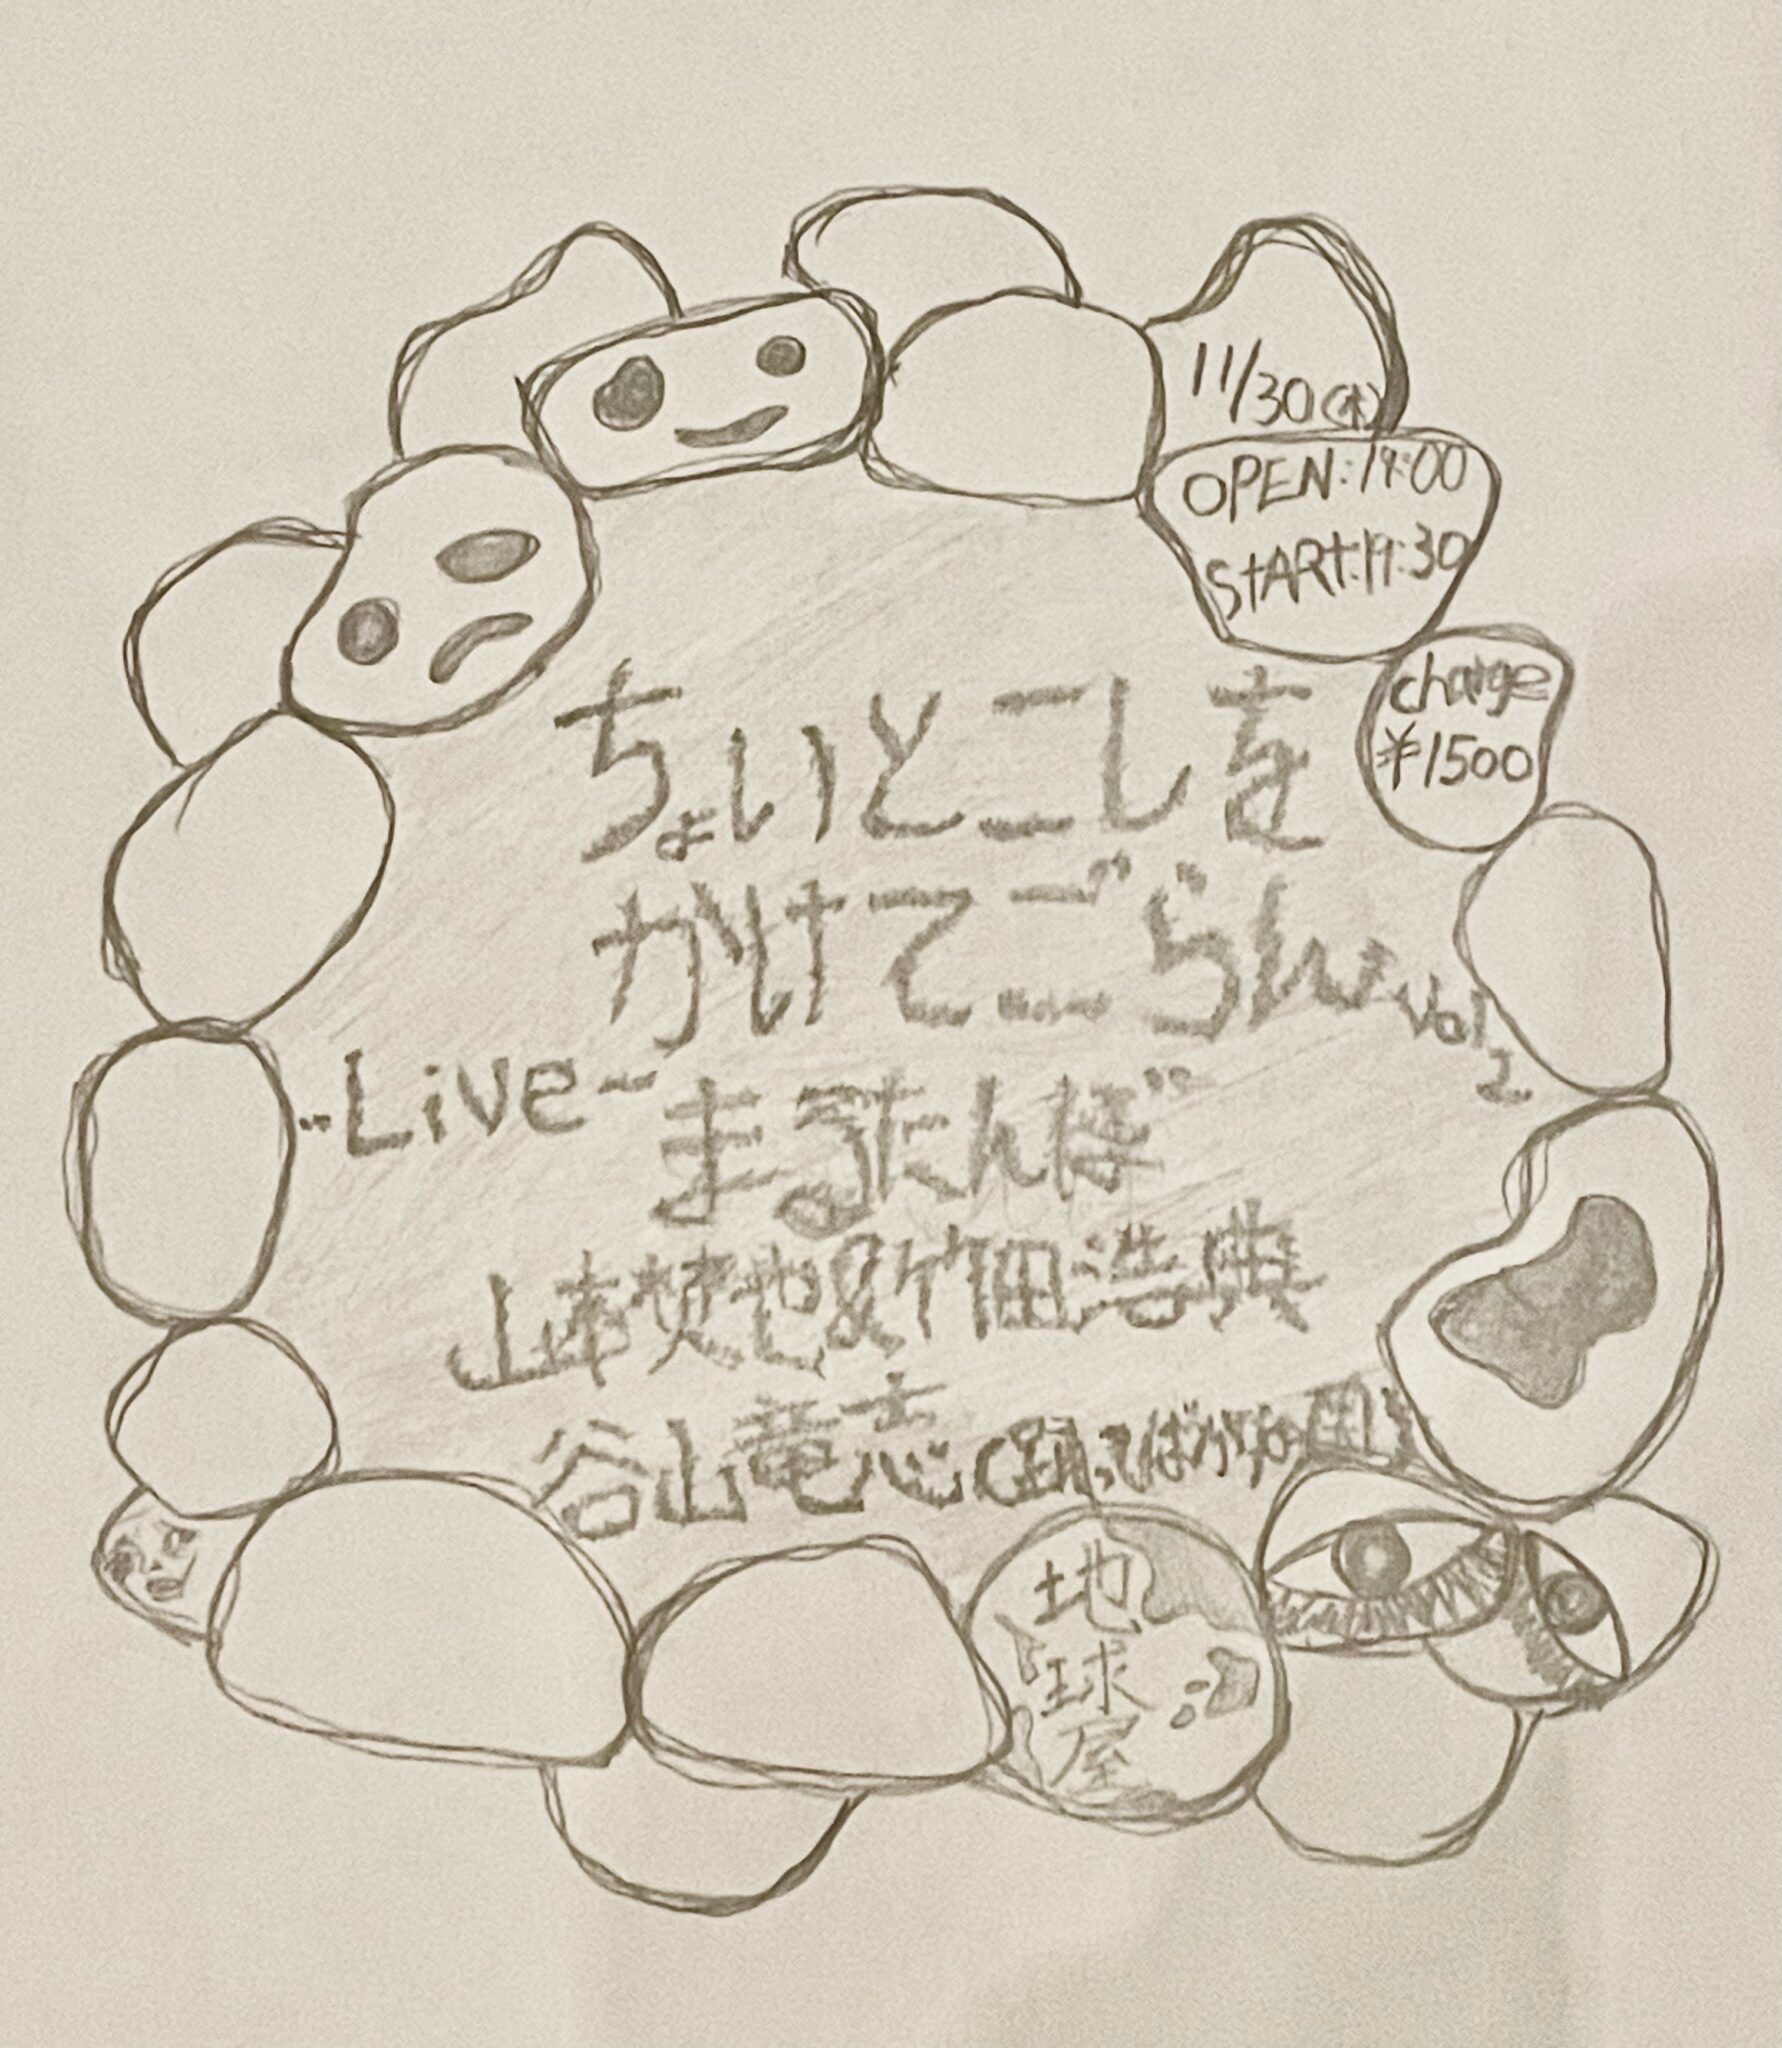 11/30
OPEN:19:00
START:19:30
charge
¥1500
ちょいとこしを
かけてごらん vol 2
-Live-
まるたんぼ
竹田浩典
谷山竜志(踊ってばかりの国)
地球屋